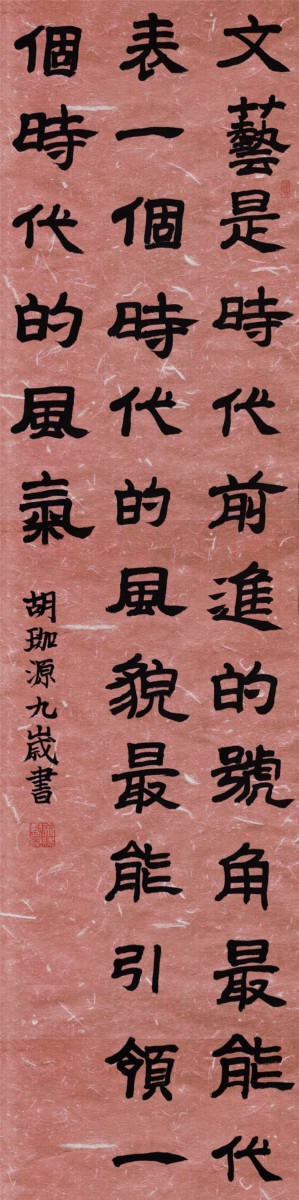 文藝是時代前進的號角最能代
表一個時代的風貌最能引領一
個時代的風氣
胡珈源九歲書